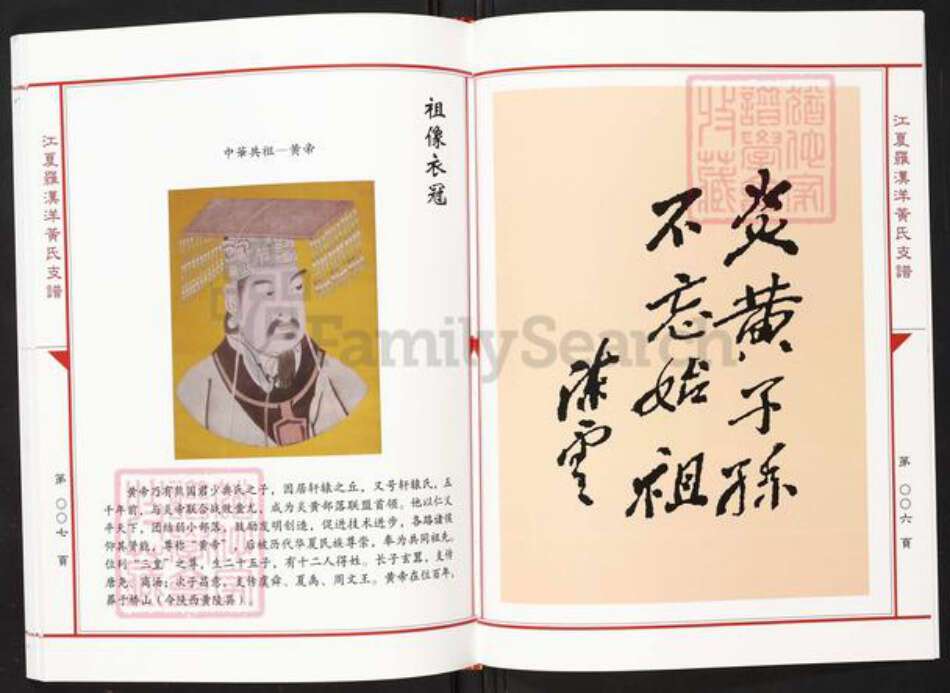 江夏羅漢洋黃氏支譜
第〇〇六頁
炎黄子孫
不忘始祖
陈雲
祖像衣冠
中華共祖—黄帝
黄帝乃有熊国君少典氏之子，因居轩辕之丘，又号轩辕氏，五
千年前，与炎帝联合战败蚩尤，成为炎黄部落联盟首领。他以仁义
平天下，团结弱小部落，鼓励发明创造，促进技术进步，各路诸侯
仰其贤能，尊称“黄帝”，后被历代华夏民族尊崇，奉为共同祖先，
位列“三皇”之尊，生二十五子，有十二人得姓。长子玄嚣，支传
唐尧、商汤；次子昌意，支传虞舜、夏禹、周文王。黄帝在位百年，
葬于桥山（今陕西黄陵县）。
江夏羅漢洋黃氏支譜
第〇〇七頁
FamilySearch